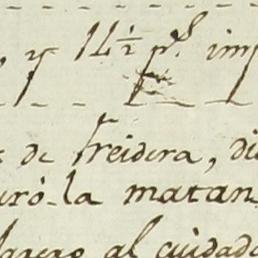 y 14½ p.s imp
de freidera, di
uró la matan
al cuidado